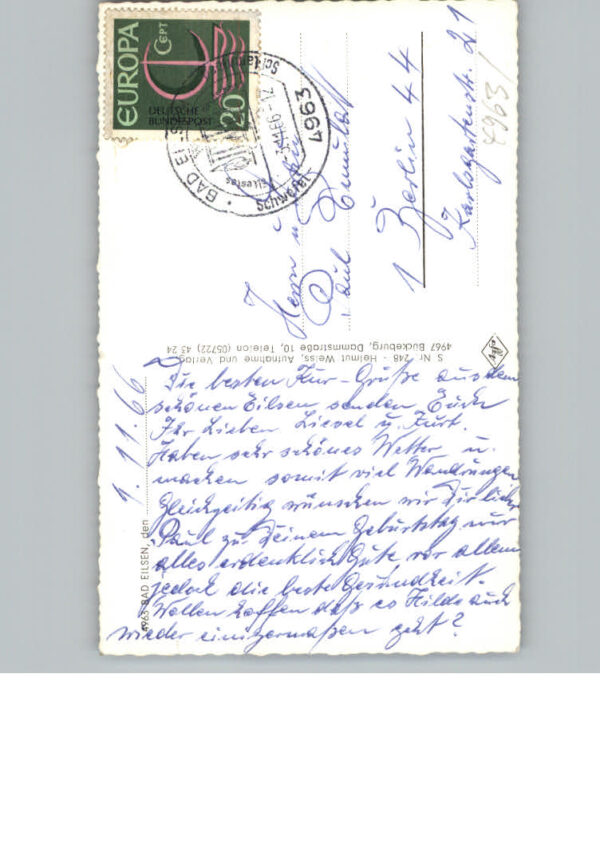 EUROPA
CEPT
DEUTSCHE
BUNDESPOST
20
4963 BAD EILSEN, den
1.11.66
Die besten Kur-Grüße aus dem
schönen Eilsen senden Euch
Ihr Lieben Liesel u. Kurt.
Haben sehr schönes Wetter u.
machen somit viel Wandrungen
Gleichzeitig wünschen wir Dir lieber
Paul zu Deinem Geburtstag nur
alles erdenklich Gute, vor allem
jedoch die beste Gesundheit.
Wollen hoffen daß es Hilde auch
wieder einigermaßen geht?
S. Nr. 248 - Helmut Weiss, Aufnahme und Verlag
4967 Bückeburg, Dammstraße 10, Telefon (05722) 43 24
Herrn u.
Paul
1 Berlin 44
Karlsgartenstr. 21
4963
-3.11.66-12
ältestes
4963